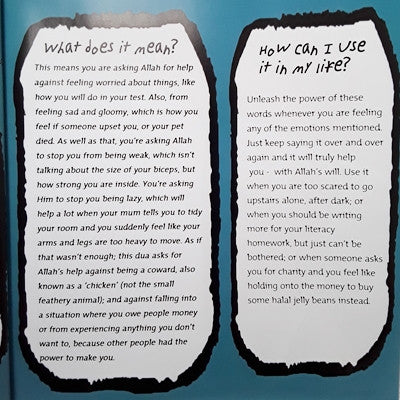 What does it mean?
This means you are asking Allah for help
against feeling worried about things, like
how you will do in your test. Also, from
feeling sad and gloomy, which is how you
feel if someone upset you, or your pet
died. As well as that, you're asking Allah
to stop you from being weak, which isn't
talking about the size of your biceps, but
how strong you are inside. You're asking
Him to stop you being lazy, which will
help a lot when your mum tells you to tidy
your room and you suddenly feel like your
arms and legs are too heavy to move. As if
that wasn't enough; this dua asks for
Allah's help against being a coward, also
known as a 'chicken' (not the small
feathery animal); and against falling into
a situation where you owe people money
or from experiencing anything you don't
want to, because other people had the
power to make you.
How can I use
it in my life?
Unleash the power of these
words whenever you are feeling
any of the emotions mentioned.
Just keep saying it over and over
again and it will truly help
you - with Allah's will. Use it
when you are too scared to go
upstairs alone, after dark; or
when you should be writing
more for your literacy
homework, but just can't be
bothered; or when someone asks
you for charity and you feel like
holding onto the money to buy
some halal jelly beans instead.